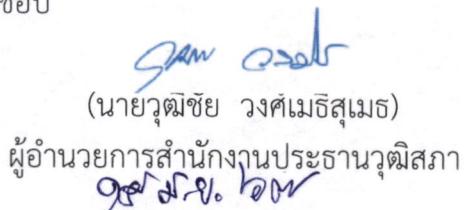 ชอบ
(นายวุฒิชัย วงศ์เมธีสุเมธ)
ผู้อำนวยการสำนักงานประธานวุฒิสภา
มิ.ย. ๖๗